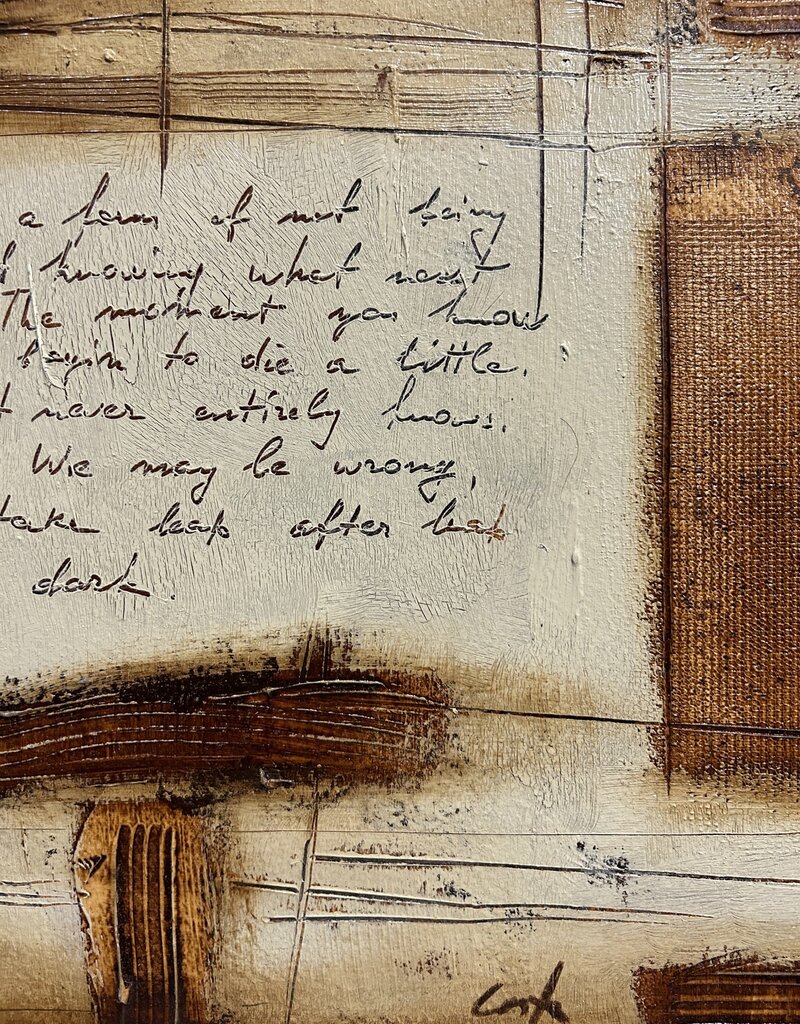 a form of not being
knowing what next
The moment you know
begin to die a little.
never entirely knows.
We may be wrong,
take leap after leap
dark.